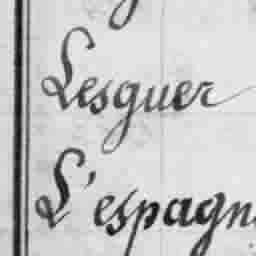 Lesguer
L'espagn